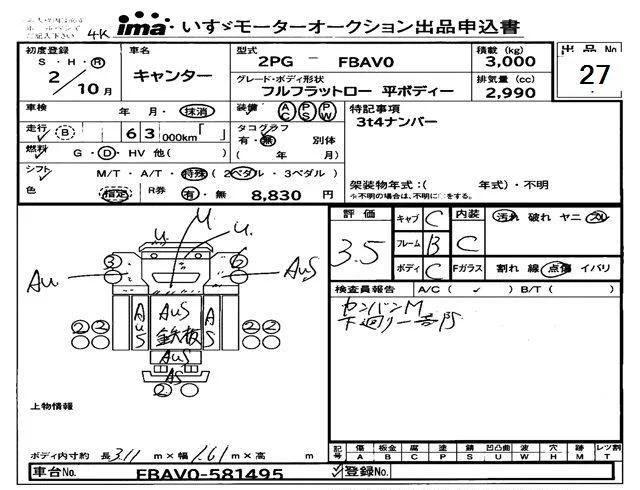 に記入下さい 4K ima いすゞモーターオークション出品申込書
初度登録 車名 型式 積載 (kg) 出品No
S・H・R 2PG - FBAV0 3,000
2/10月 キャンター グレード・ボディ形状 排気量 (cc) 27
フルフラットロー 平ボディー 2,990
車検 年 月・抹消 装備 AC PS PW 特記事項
走行 B 63 000km「 」 タコグラフ 3t4ナンバー
有・無 別体
燃料 G・D・HV 他( ) ( 年 月)
シフト M/T・A/T・特殊 (2ペダル・3ペダル)
色 指定 R券 有・無 8,830 円 架装物年式:( 年式)・不明
※不明の場合は、不明に○をする。
評価 キャブ C 内装 汚れ 破れ ヤニ
3.5 フレーム B C
ボディ C Fガラス 割れ 線 点傷 イバリ
検査員報告 A/C( ✓ ) B/T( )
カンバンM
下廻り一部S
M
U. U.
3 6
Au AuS
AuS AuS AuS
鉄板
2 2 2 2
AuS
AS
2
上物情報
ボディ内寸約 長 3.11 m×幅 1.61 m×高 m
記号 傷 板金 腐 塗 錆 凹凸曲 波 穴 跡 レツ割
A B C P S U W H M T
車台No. FBAV0-581495 登録No.